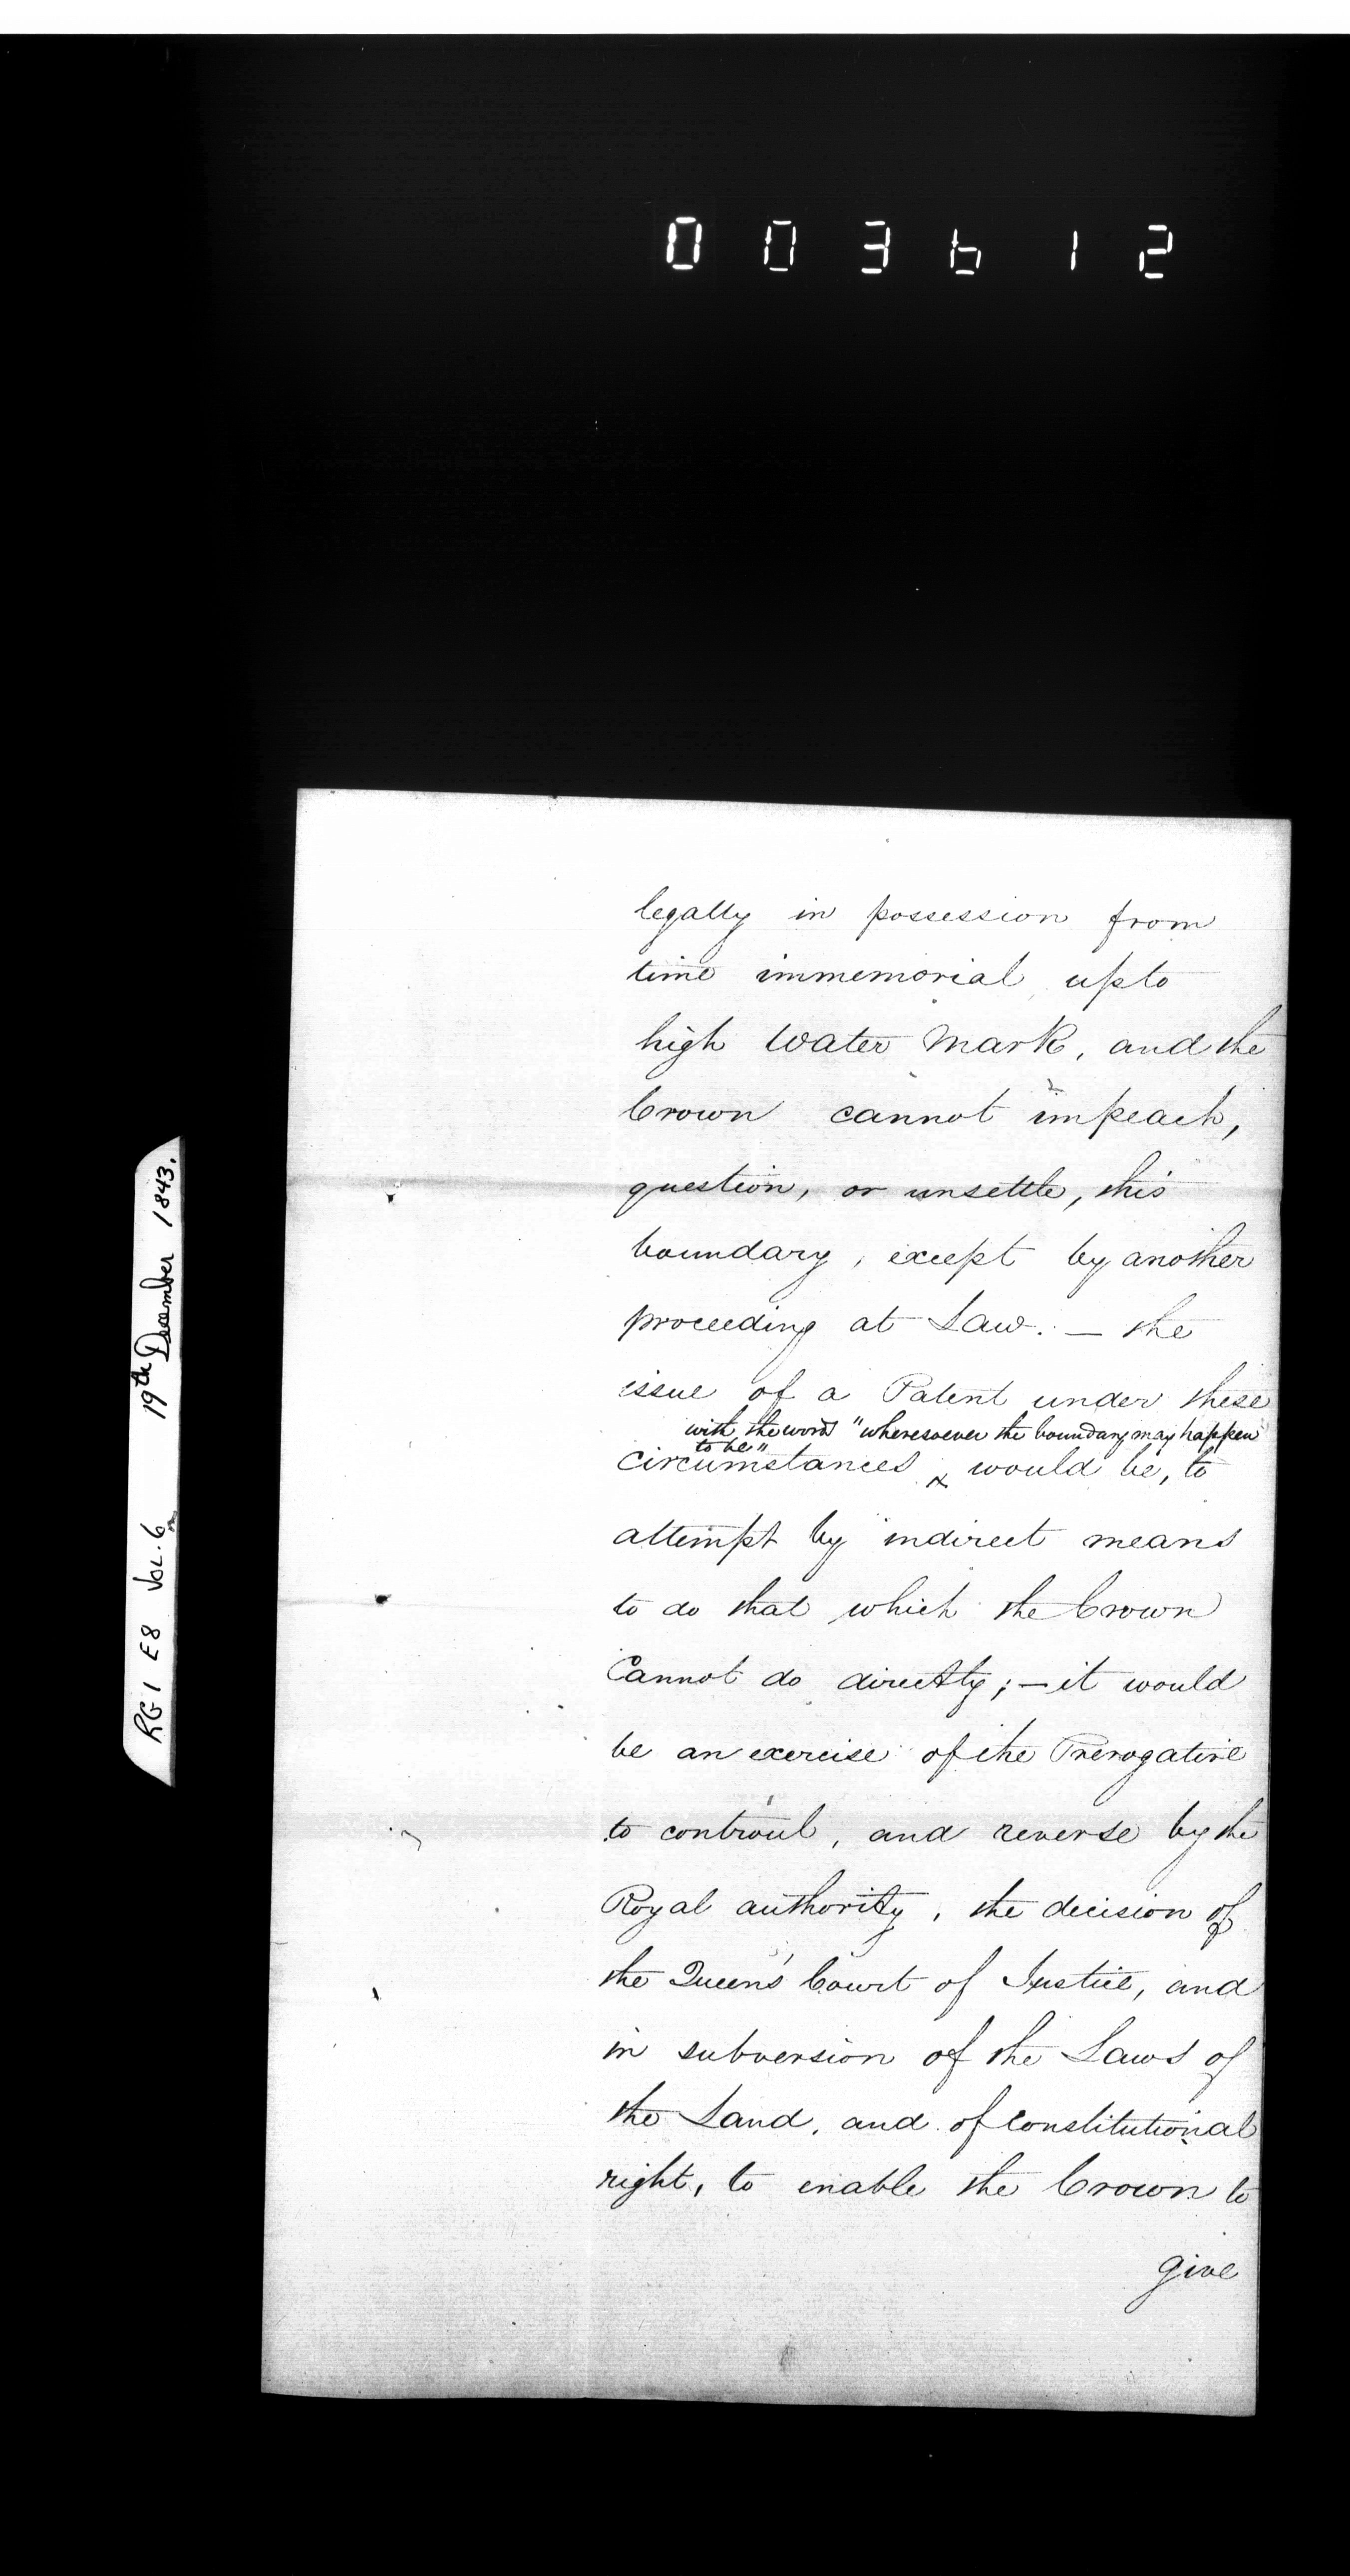 003612
RG1 E8 VOL. 6 19th December 1843.
legally in possession from
time immemorial upto
high Water Mark, and the
Crown cannot impeach,
question, or unsettle, this
boundary, except by another
proceeding at Law. — the
issue of a Patent under these
with the words "wheresoever the boundary may happen
to be"
circumstances x would be, to
attempt by indirect means
to do that which the Crown
Cannot do directly; — it would
be an exercise of the Prerogative
to controul, and reverse by the
Royal authority, the decision of
the Queen's Court of Justice, and
in subversion of the Laws of
the Land, and of Constitutional
right, to enable the Crown to
give